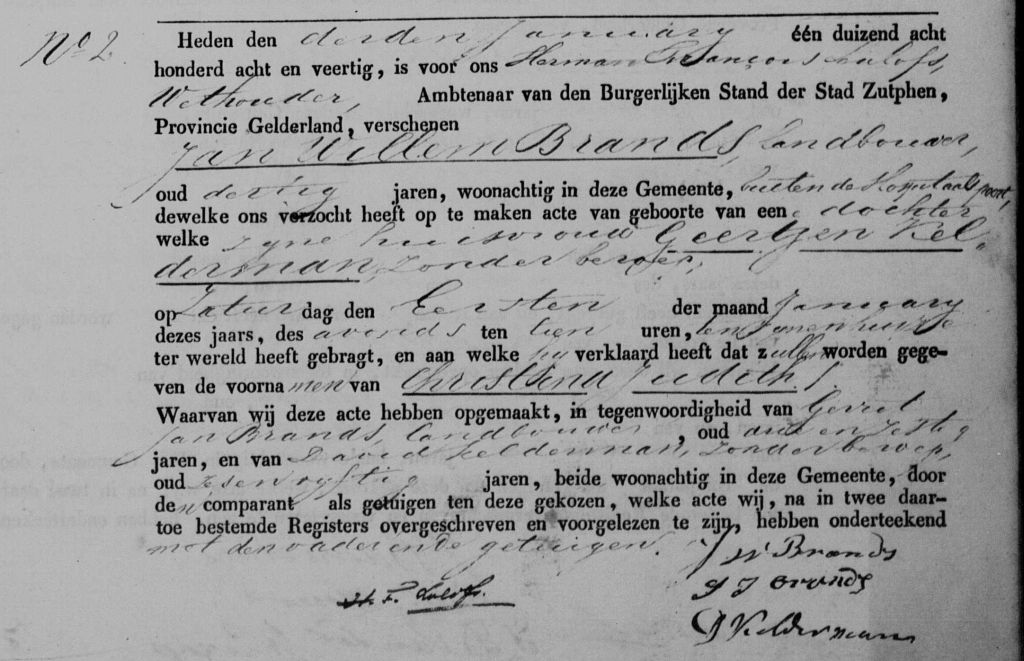 No 2. Heden den derden January één duizend acht
honderd acht en veertig, is voor ons Herman François Lulofs,
Wethouder, Ambtenaar van den Burgerlijken Stand der Stad Zutphen,
Provincie Gelderland, verschenen
Jan Willem Brands, Landbouwer,
oud dertig jaren, woonachtig in deze Gemeente, buiten de Hospitaalspoort,
dewelke ons verzocht heeft op te maken acte van geboorte van eene dochter
welke zyne huisvrouw Geertjen Kel-
derman, zonder beroep,
op Zaturdag den Eersten der maand January
dezes jaars, des avonds ten tien uren, ten zynen huize
ter wereld heeft gebragt, en aan welke hy verklaard heeft dat zullen worden gege-
ven de voornamen van Christina Judith.
Waarvan wij deze acte hebben opgemaakt, in tegenwoordigheid van Gerrit
Jan Brands, landbouwer, oud drie en zestig
jaren, en van David Kelderman, zonder beroep,
oud zes en vyftig jaren, beide woonachtig in deze Gemeente, door
den comparant als getuigen ten deze gekozen, welke acte wij, na in twee daar-
toe bestemde Registers overgeschreven en voorgelezen te zijn, hebben onderteekend
met den vader en de getuigen.
J W Brands
G J Brands
H. F. Lulofs.
D Kelderman